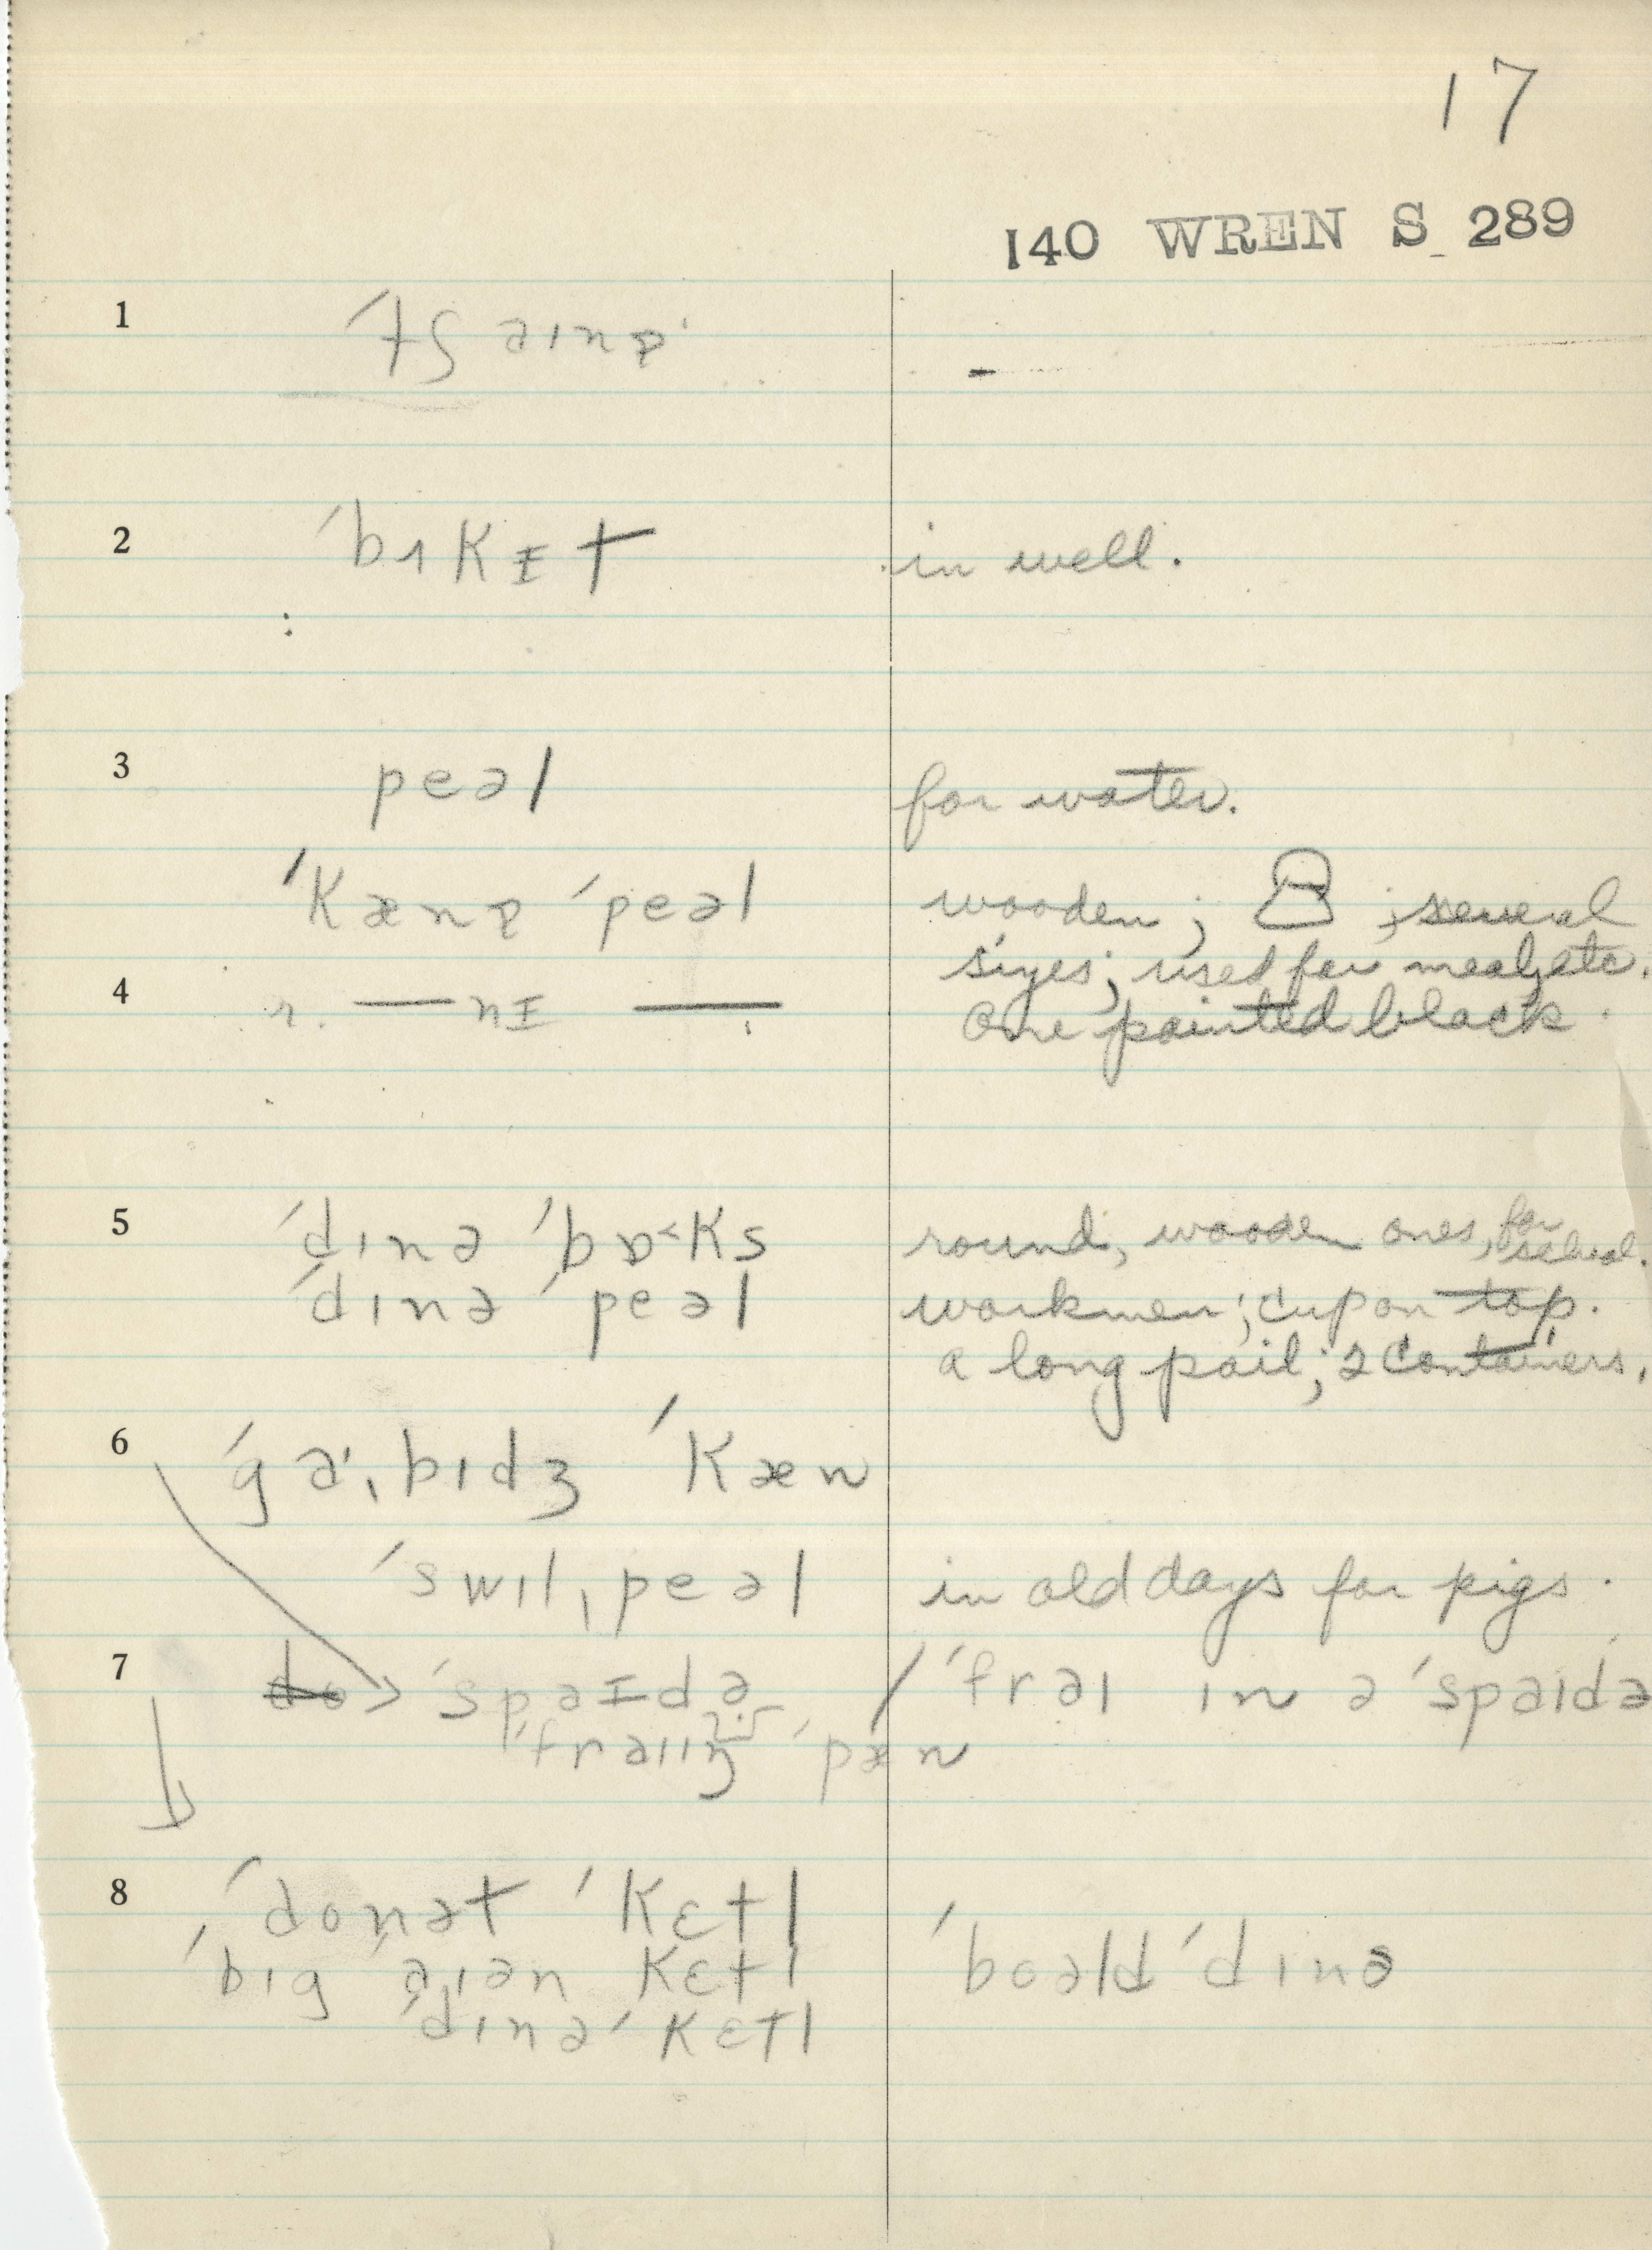 17
140 WREN S 289
1 ˈtʃainə
2 ˈbʌkɪt in well.
3 peəl for water.
ˈkænə ˈpeəl wooden; ; several
sizes; used for meal, etc.
4 r. — nɪ — One painted black.
5 ˈdɪnə ˈbɒ˂ks round, wooden ones, for school.
ˈdɪnə ˈpeəl workmen; cup on top.
a long pail; 2 containers.
6 ˈgaˑˌbɪdʒ ˈkæn
ˈswɪlˌpeəl in old days for pigs.
7 do > ˈspaɪdə / ˈfraɪ ɪn ə ˈspaɪdə
ˈfraɪɪŋ ˈpæn
8 ˈdonət ˈkɛtl
ˈbɪg ˈaɪən kɛtl ˈboəld ˈdɪnə
ˈdɪnə ˈkɛtl